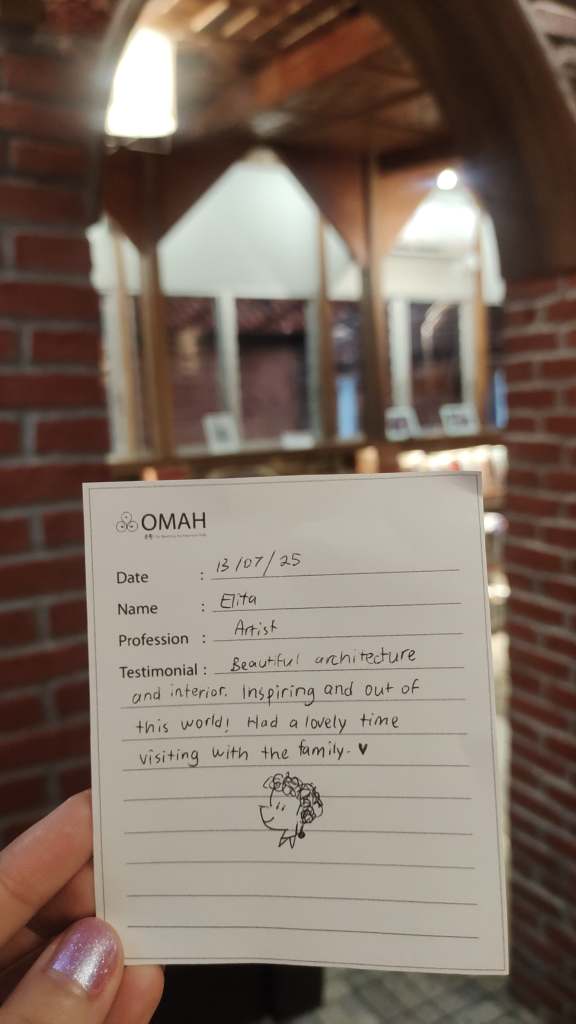 OMAH
Date : 13/07/25
Name : Elita
Profession : Artist
Testimonial : Beautiful architecture
and interior. Inspiring and out of
this world! Had a lovely time
visiting with the family. ♥